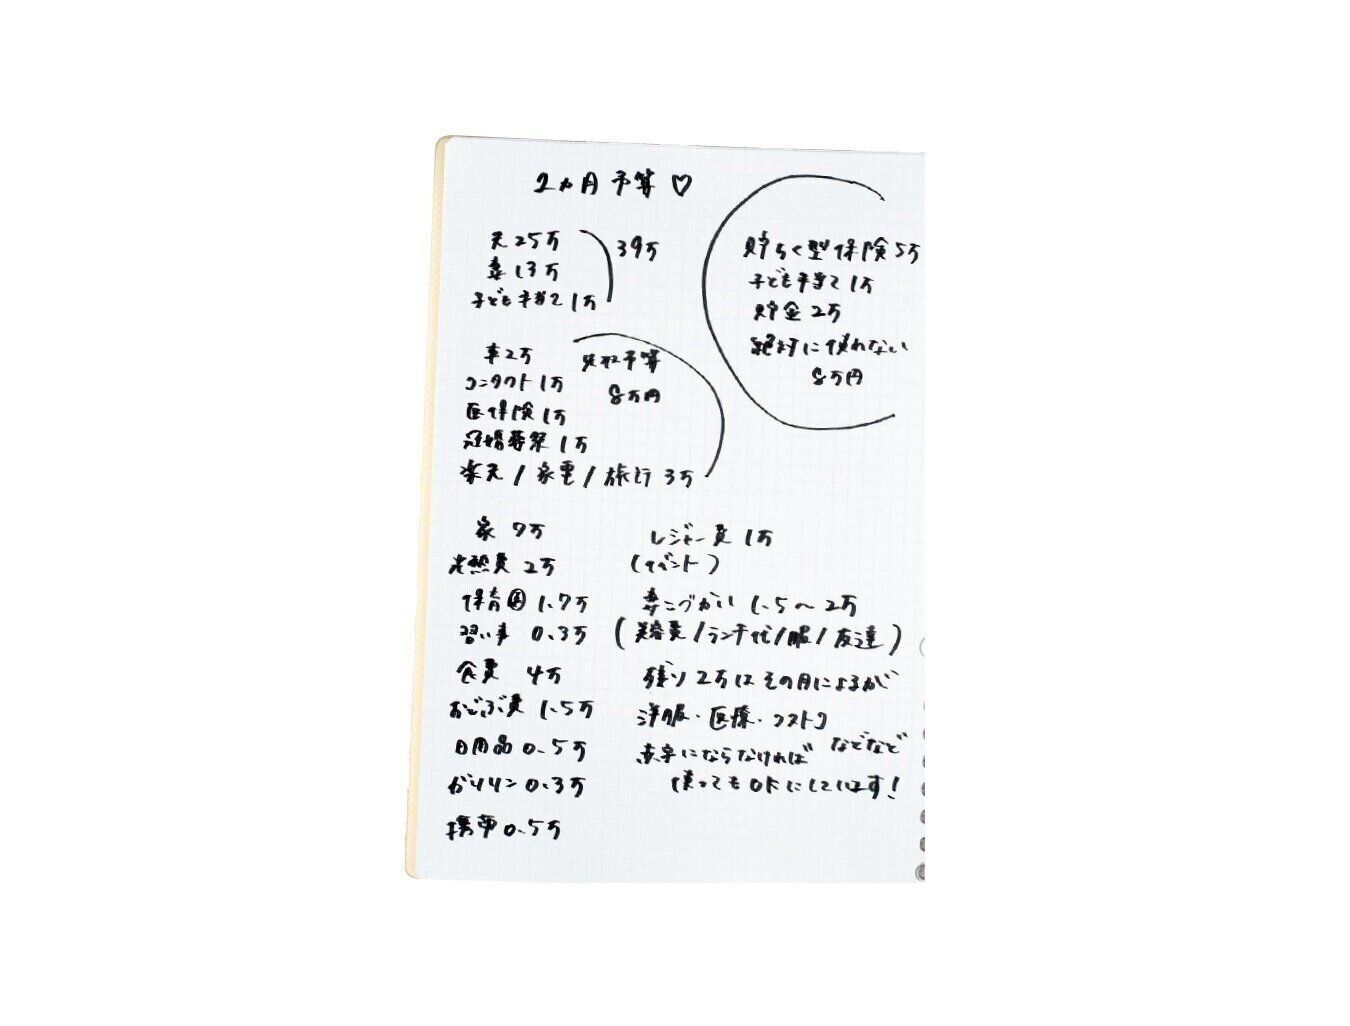 2ヵ月予算♡
夫25万
妻13万
子ども手当て1万
39万
貯ちく型保険5万
子ども手当て1万
貯金2万
絶対に使れない
8万円
車2万
コンタクト1万
医保険1万
冠婚葬祭1万
楽天/家電/旅行3万
先取予算
8万円
家7万
光熱費2万
保育園1.7万
習い事0.3万
食費4万
おむつ費1.5万
日用品0.5万
ガソリン0.3万
携帯0.5万
レジャー費1万
(イベント)
妻こづかい1.5〜2万
(美容費/ランチ代/服/友達)
残り2万はその月によるが
洋服・医療・コストコ
などなど
赤字にならなければ
使ってもOKにしています!